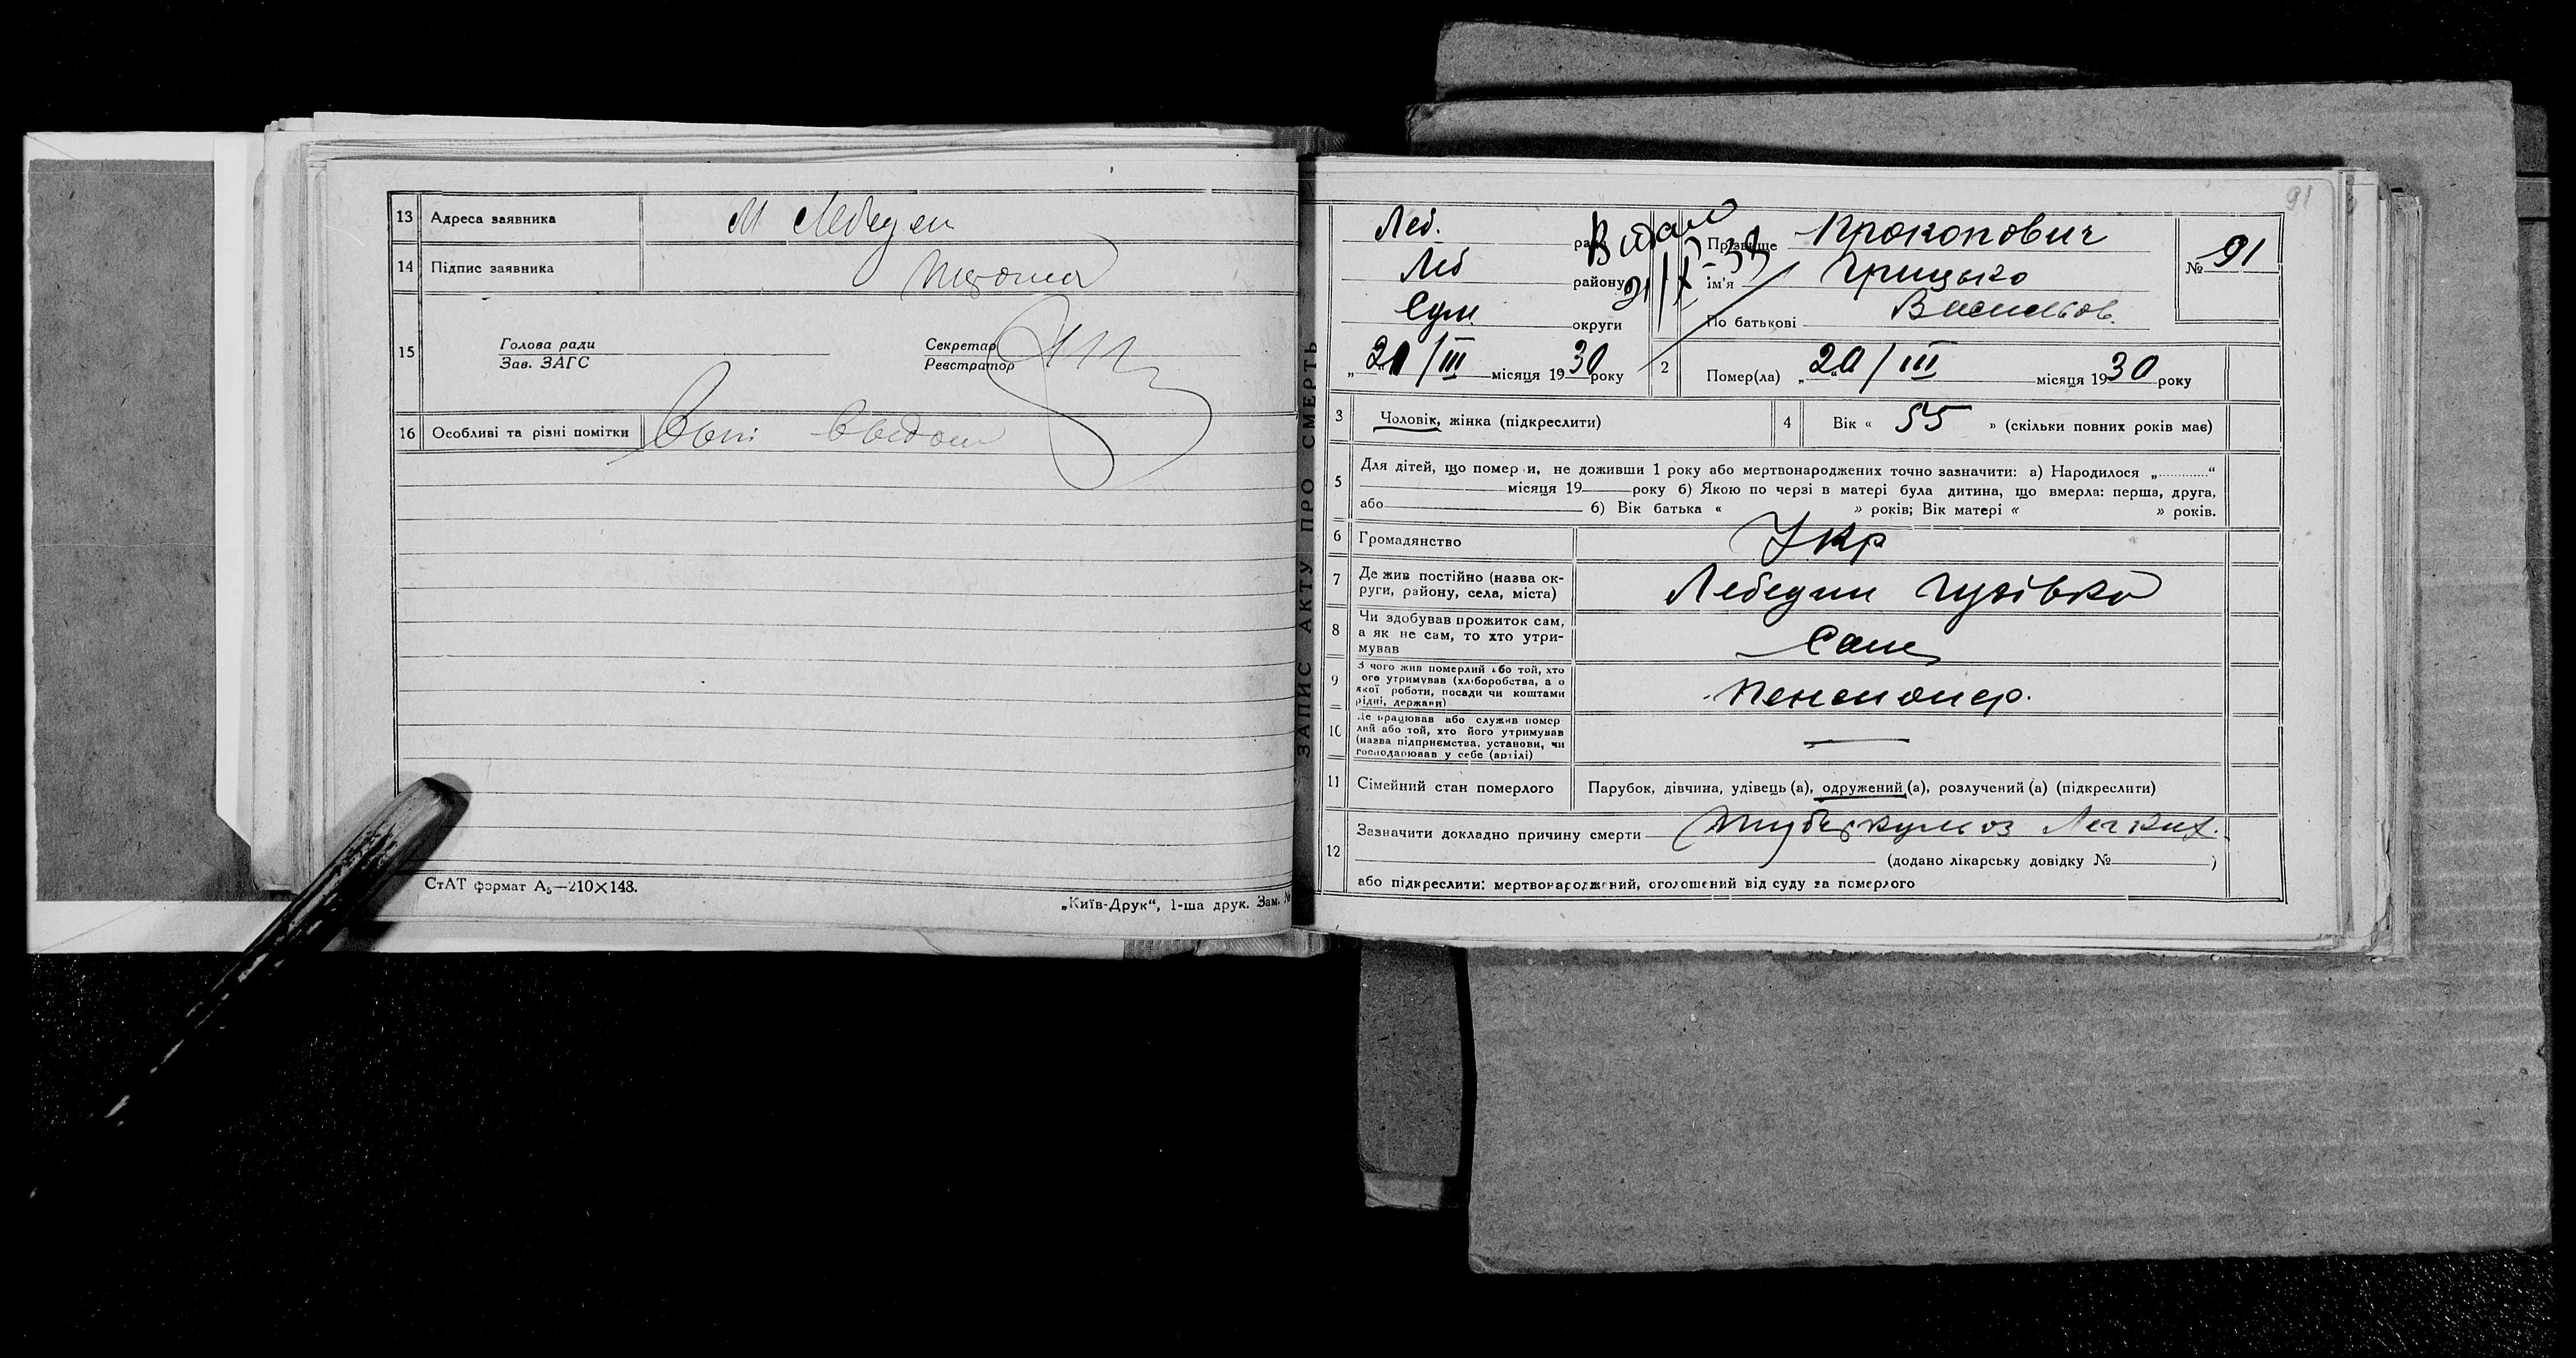 13 Адреса заявника М Лебедин
14 Підпис заявника
15 Голова ради
Зав. ЗАГС
Секретар
Реєстратор
16 Особливі та різні помітки
СтАТ формат А₅—210×148.
„Київ-Друк“, 1-ша друк. Зам. №
ЗАПИС АКТУ ПРО СМЕРТЬ
91
Леб. ради
Леб району
Сум округи
„ 21/III місяця 1930 року
Прізвище Прокопович
ім'я Грицько
По батькові Васильов.
№ 91
2 Помер(ла) „20“/III місяця 1930 року
3 Чоловік, жінка (підкреслити)
4 Вік « 55 » (скільки повних років має)
5 Для дітей, що помер и, не доживши 1 року або мертвонароджених точно зазначити: а) Народилося „............“
місяця 19 року б) Якою по черзі в матері була дитина, що вмерла: перша, друга,
або б) Вік батька « » років; Вік матері « » років.
6 Громадянство Укр
7 Де жив постійно (назва ок-
руги, району, села, міста) Лебедин Гузівка
8 Чи здобував прожиток сам,
а як не сам, то хто утри-
мував Сам
9 З чого жив померлий або той, хто
ого утримував (хліборобства, а о
якої роботи, посади чи коштами
рідні, держави) пенсионер.
10 Де працював або служив помер
лий або той, хто його утримував
(назва підприємства, установи, чи
господарював у себе (артілі) —
11 Сімейний стан померлого Парубок, дівчина, удівець (а), одружений (а), розлучений (а) (підкреслити)
12 Зазначити докладно причину смерти туберкульоз Легких.
(додано лікарську довідку № )
або підкреслити: мертвонароджений, оголошений від суду за померлого